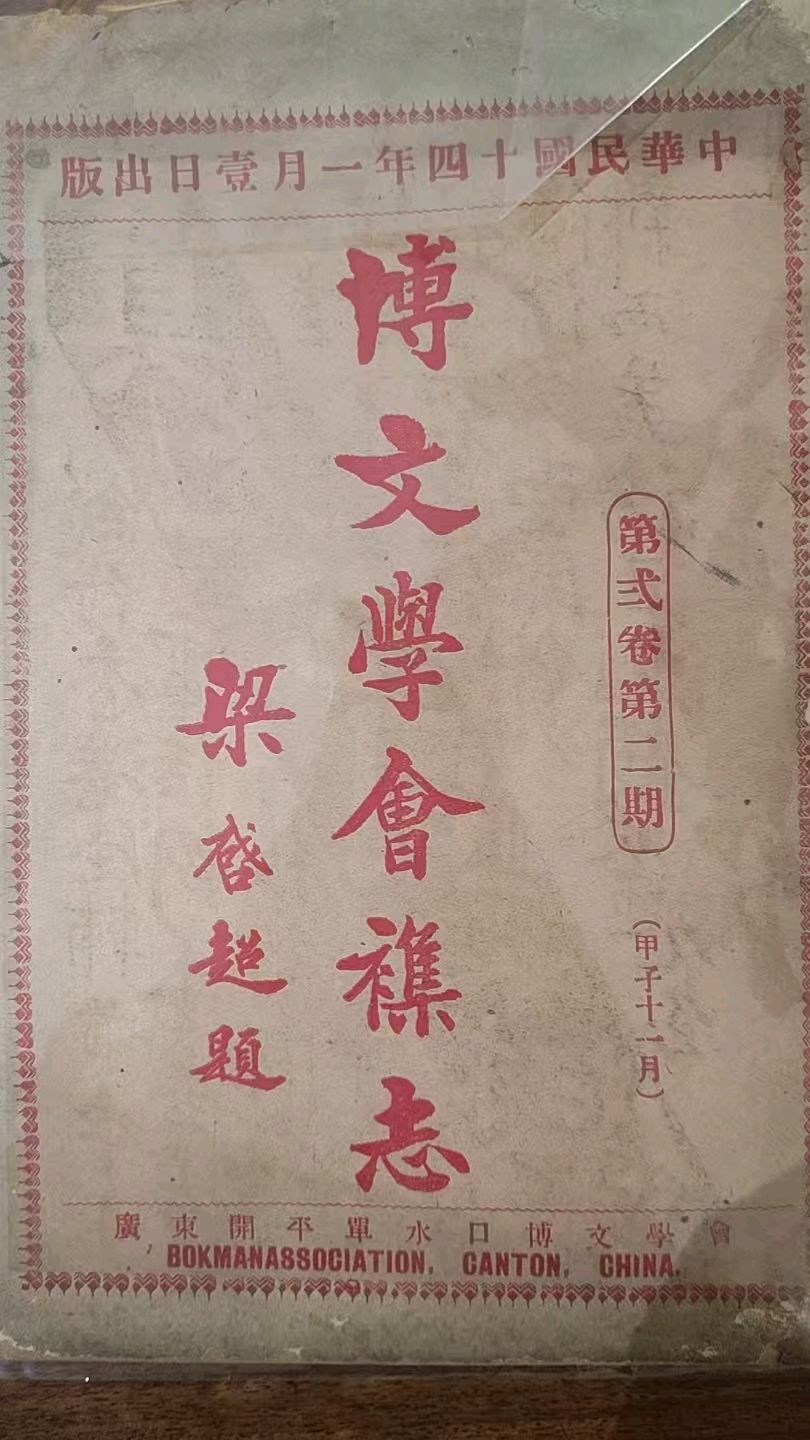 中華民國十四年一月壹日出版
第弍卷第二期
（甲子十一月）
博文學會襍志
梁啓超題
廣東開平單水口博文學會
BOKMANASSOCIATION, CANTON, CHINA.